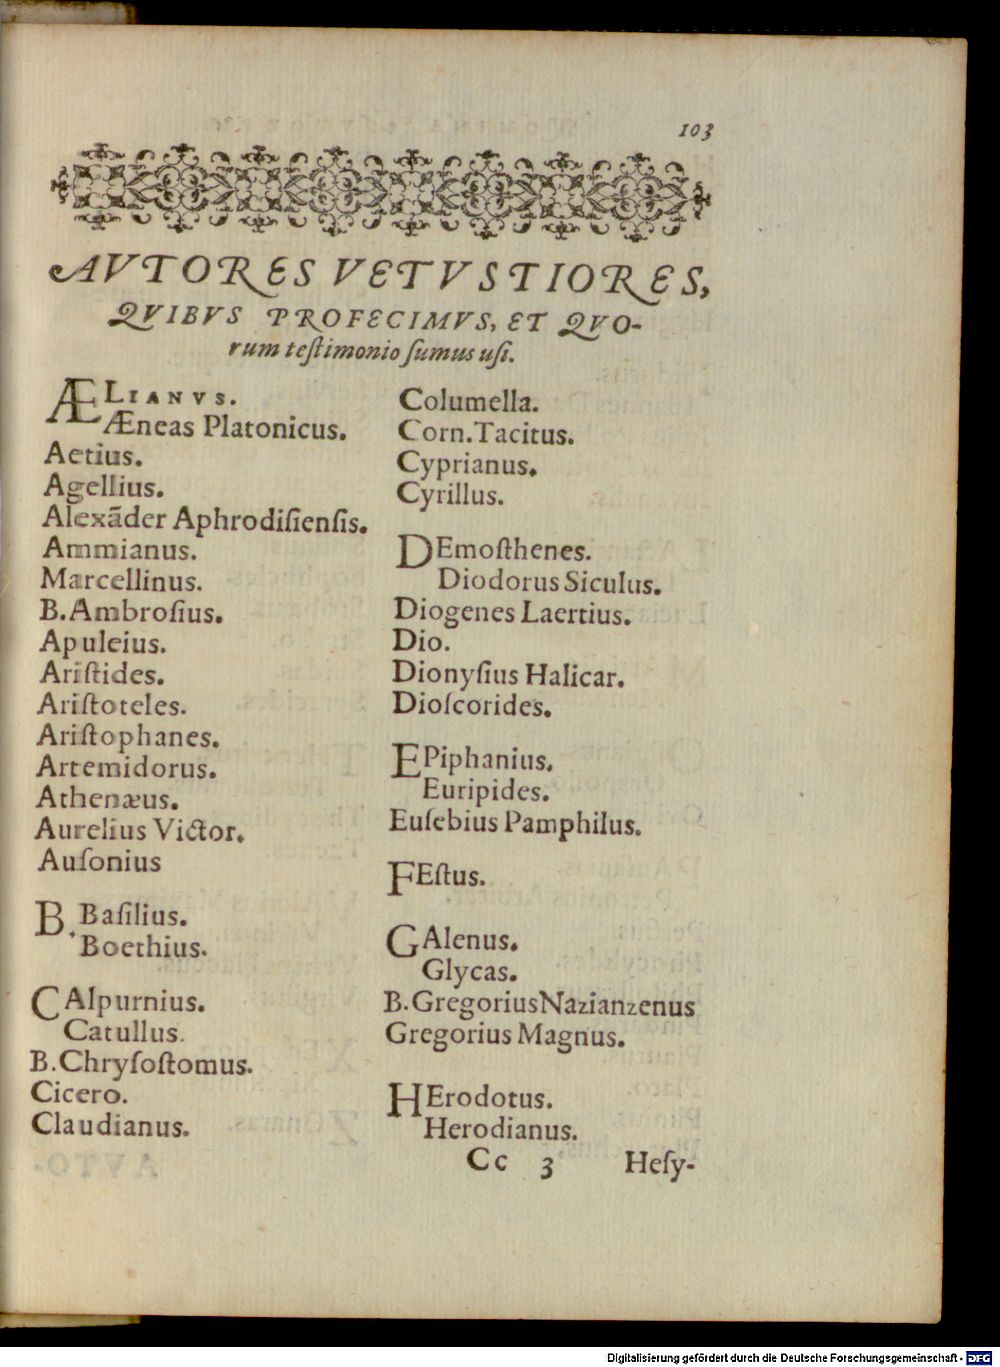 103
AVTORES VETVSTIORES,
QVIBVS PROFECIMVS, ET QVO-
rum teſtimonio ſumus uſi.
ÆLIANVS.
Æneas Platonicus.
Aetius.
Agellius.
Alexãder Aphrodiſienſis.
Ammianus.
Marcellinus.
B. Ambroſius.
Apuleius.
Ariſtides.
Ariſtoteles.
Ariſtophanes.
Artemidorus.
Athenæus.
Aurelius Victor.
Auſonius
B. Baſilius.
Boethius.
CAlpurnius.
Catullus.
B. Chryſoſtomus.
Cicero.
Claudianus.
Columella.
Corn. Tacitus.
Cyprianus.
Cyrillus.
DEmoſthenes.
Diodorus Siculus.
Diogenes Laertius.
Dio.
Dionyſius Halicar.
Dioſcorides.
EPiphanius.
Euripides.
Euſebius Pamphilus.
FEſtus.
GAlenus.
Glycas.
B. Gregorius Nazianzenus
Gregorius Magnus.
HErodotus.
Herodianus.
Cc 3 Heſy-
Digitalisierung gefördert durch die Deutsche Forschungsgemeinschaft - DFG